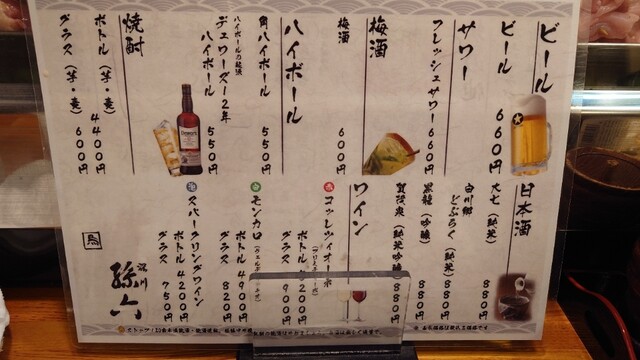 ビール
ビール 660円
サワー
フレッシュサワー 660円
梅酒
梅酒 600円
ハイボール
角ハイボール 550円
ハイボールの最後
デュワーズ12年
ハイボール 550円
焼酎
ボトル（芋・麦） 4400円
グラス（芋・麦） 600円
日本酒
大七（純米） 880円
白川郷
どぶろく（純米） 880円
黒龍（吟醸） 880円
賀茂泉（純米吟醸） 880円
ワイン
赤
コッレッツィオーネ
ボトル 5200円
グラス 900円
白
モンカロ
ボトル 4900円
グラス 820円
泡
スパークリングワイン
ボトル 4200円
グラス 750円
鳥
深川
孫六